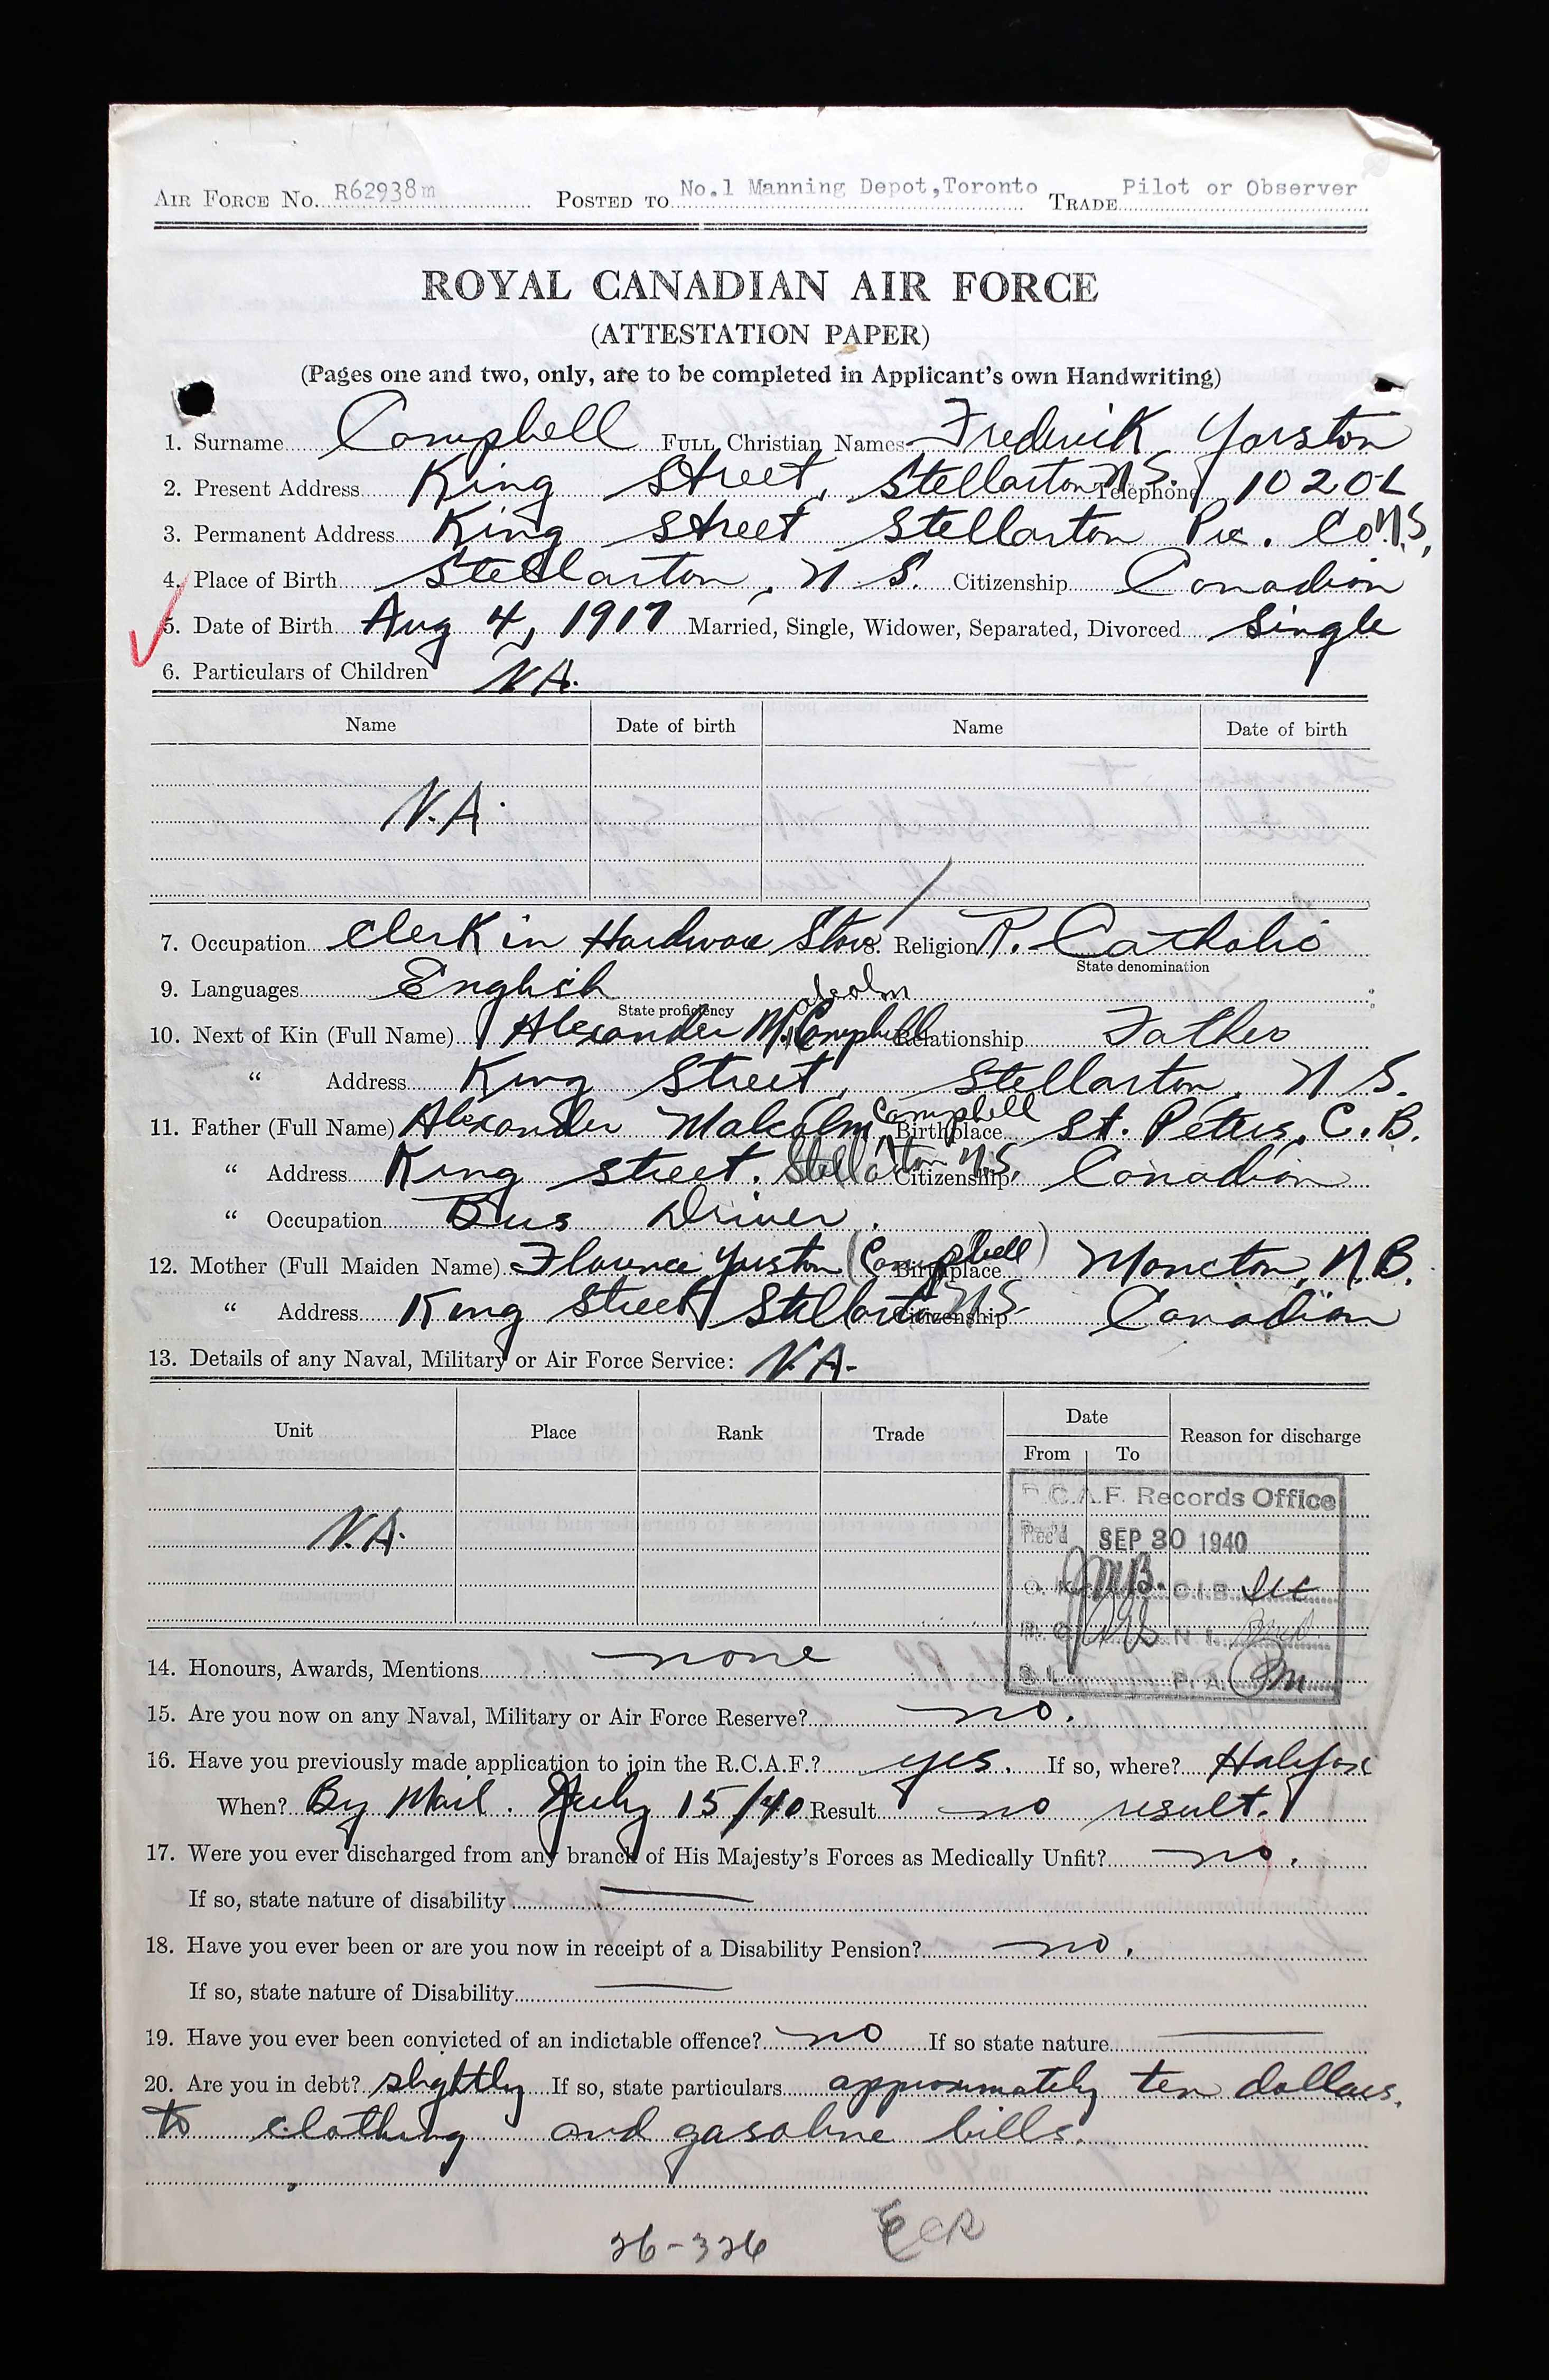 AIR FORCE NO. R62938m POSTED TO No.1 Manning Depot,Toronto TRADE Pilot or Observer
ROYAL CANADIAN AIR FORCE
(ATTESTATION PAPER)
(Pages one and two, only, are to be completed in Applicant's own Handwriting)
1. Surname Campbell FULL Christian Names Frederick Yorston
2. Present Address King Street, Stellarton N.S. Telephone 1020-L
3. Permanent Address King Street Stellarton Pic. Co N.S,
4. Place of Birth Stellarton, N.S. Citizenship Canadian
5. Date of Birth Aug 4, 1917 Married, Single, Widower, Separated, Divorced Single
6. Particulars of Children N.A.
Name Date of birth Name Date of birth
N.A.
7. Occupation Clerk in Hardware Store 8. Religion R. Catholic
State denomination
9. Languages English
State proficiency
alcolm
10. Next of Kin (Full Name) Alexander M. Campbell Relationship Father
" Address King Street, Stellarton, N.S.
11. Father (Full Name) Alexander Malcolm Campbell Birthplace St. Peters, C.B.
" Address King Street. Stellarton N.S. Citizenship Canadian
" Occupation Bus Driver.
12. Mother (Full Maiden Name) Florence Yorston (Campbell) Birthplace Moncton, N.B.
" Address King Street Stellarton N.S. Citizenship Canadian
13. Details of any Naval, Military or Air Force Service: N.A-
Unit Place Rank Trade Date Reason for discharge
From To
N.A.
R.C.A.F. Records Office
Rec'd SEP 30 1940
C.I.B.
N.I.
P.A.
14. Honours, Awards, Mentions none
15. Are you now on any Naval, Military or Air Force Reserve? no.
16. Have you previously made application to join the R.C.A.F.? yes. If so, where? Halifax
When? By Mail. July 15/40 Result no result.
17. Were you ever discharged from any branch of His Majesty's Forces as Medically Unfit? no.
If so, state nature of disability
18. Have you ever been or are you now in receipt of a Disability Pension? no.
If so, state nature of Disability
19. Have you ever been convicted of an indictable offence? no If so state nature
20. Are you in debt? slightly If so, state particulars approximately ten dollars.
to clothing and gasoline bills.
26-326